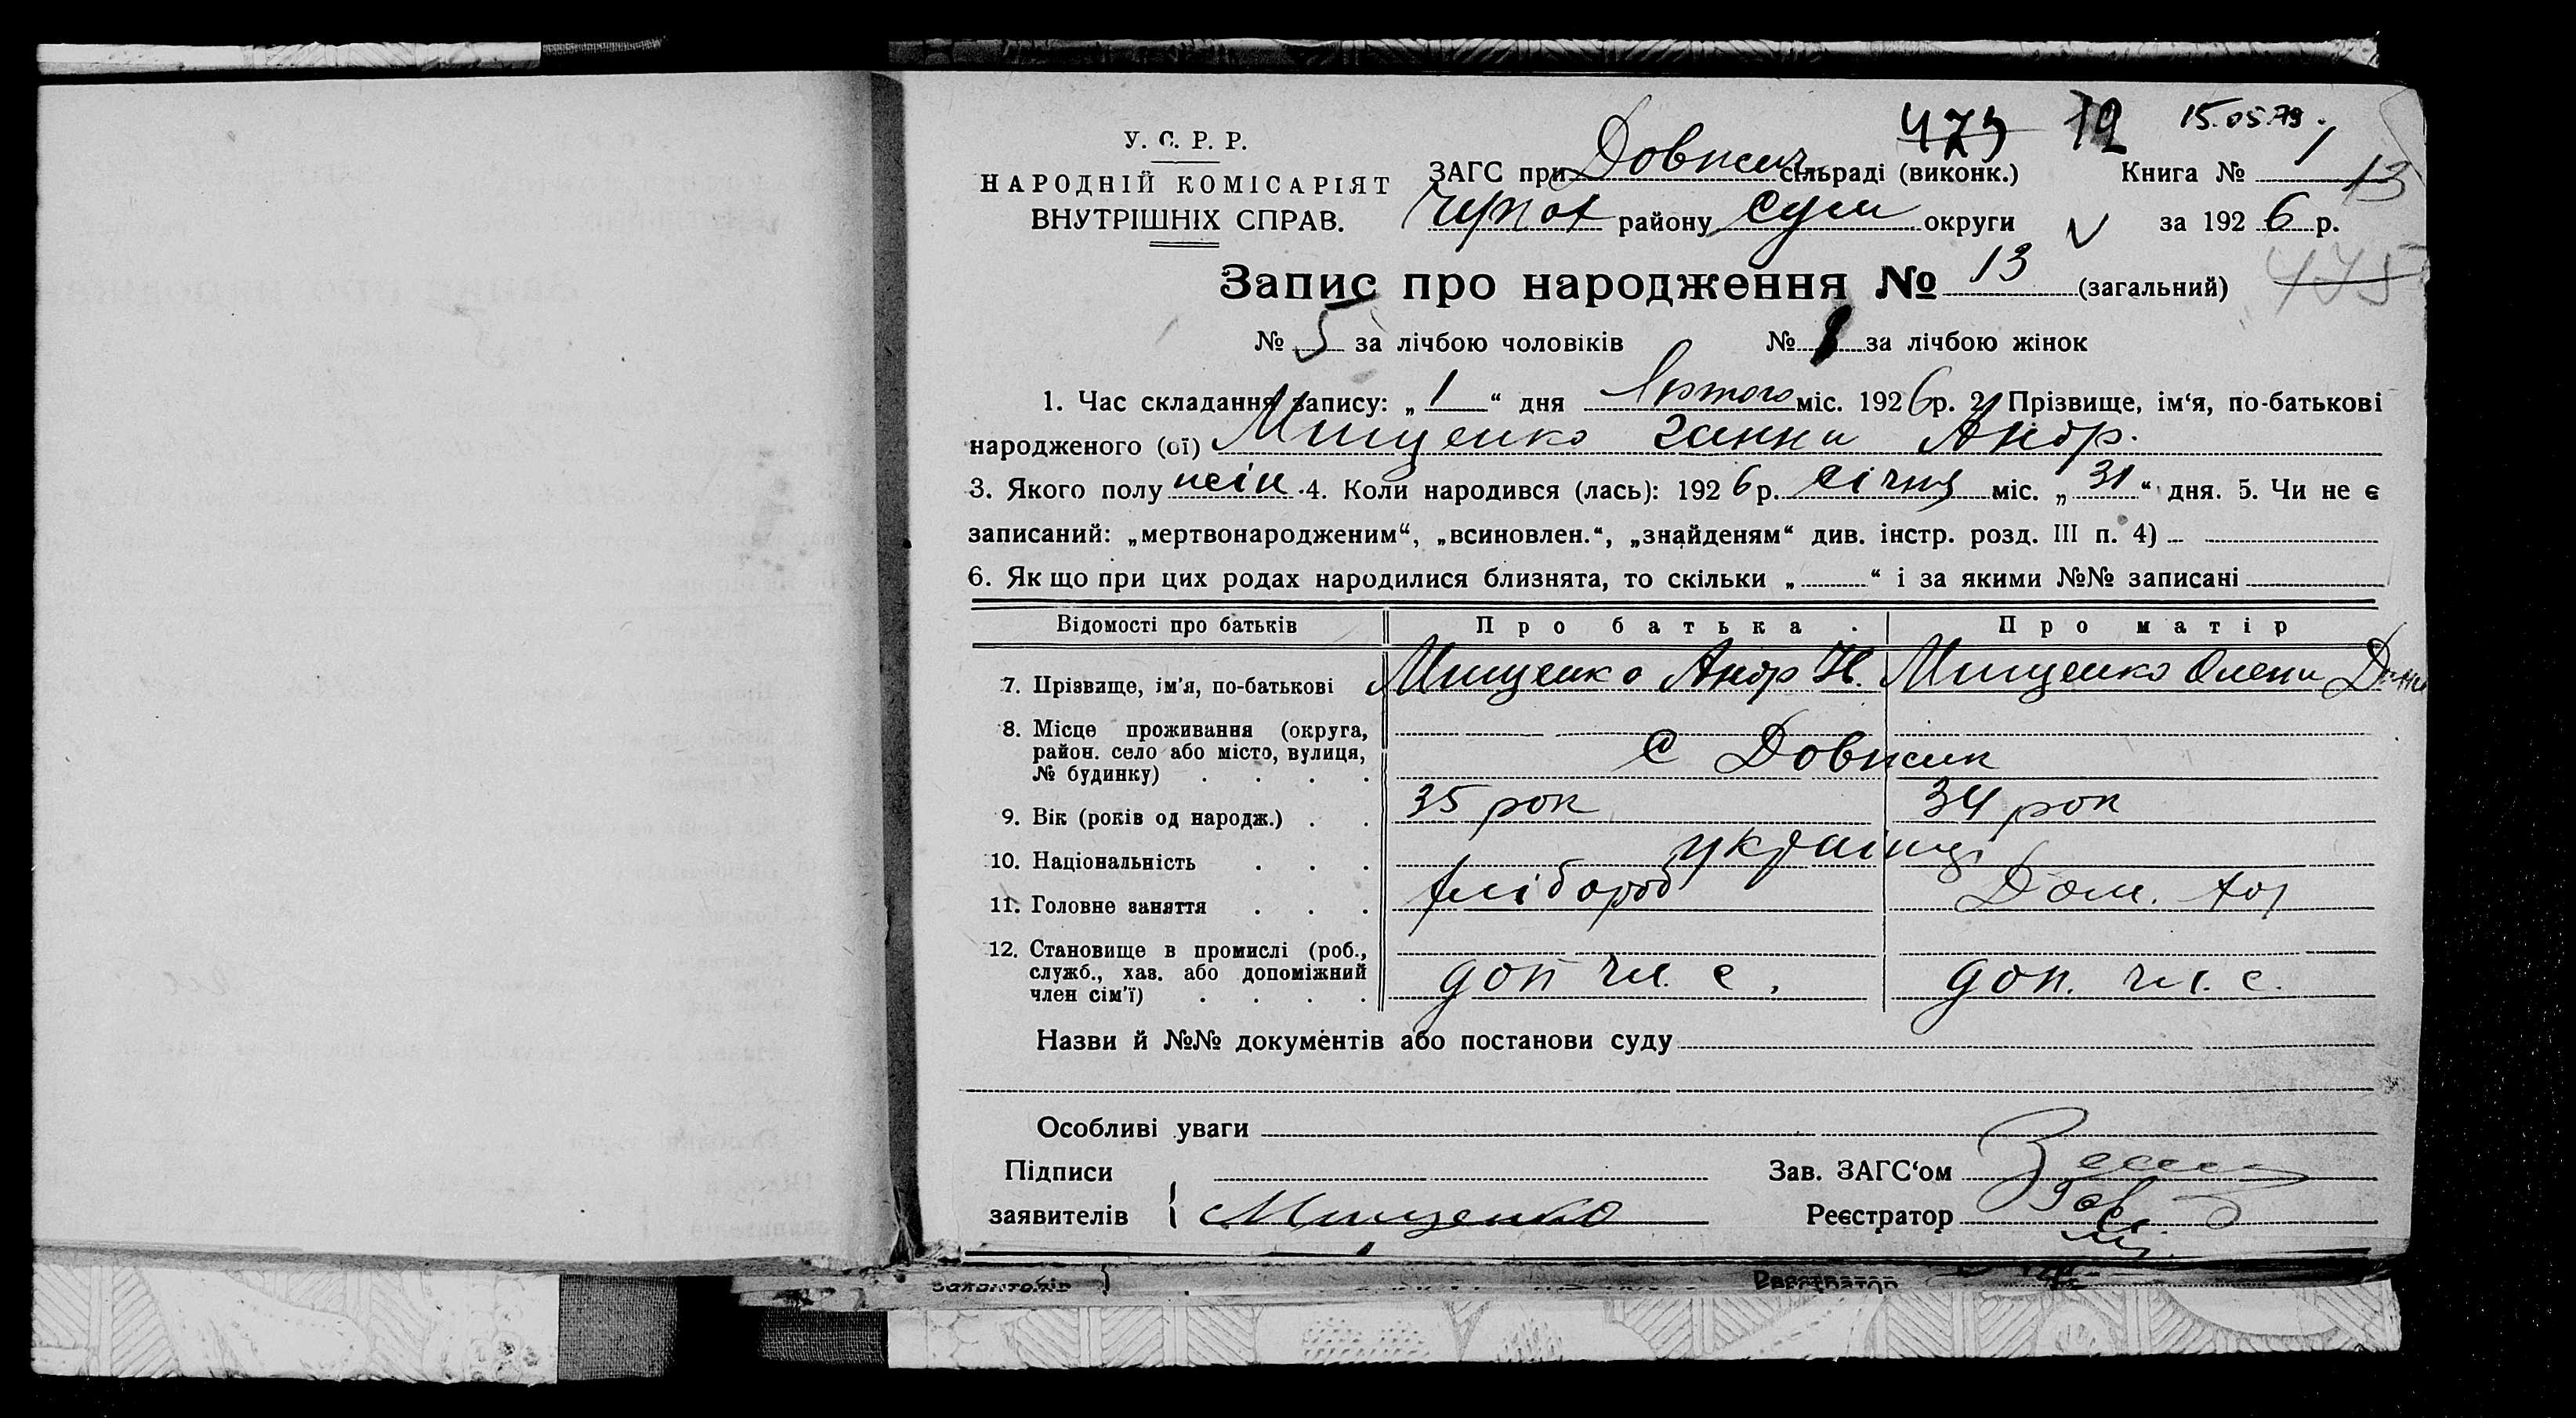 473 12 15.05.79.
У. С. Р. Р.
НАРОДНІЙ КОМІСАРІЯТ
ВНУТРІШНІХ СПРАВ.
ЗАГС при Довжич сільраді (виконк.) Книга № 1 13
району Сум округи V за 1926 р.
Запис про народження № 13 (загальний) 475
№ 5 за лічбою чоловіків № 8 за лічбою жінок
1. Час складання запису: „ 1 “ дня Лютого міс. 1926 р. 2. Прізвище, ім‘я, по-батькові
народженого (ої) Мищенко Ганна Андр.
3. Якого полу жін. 4. Коли народився (лась): 1926 р. січня міс. „ 31 “ дня. 5. Чи не є
записаний: „мертвонародженим“, „всиновлен.“, „знайденям“ див. інстр. розд. III п. 4)
6. Якщо при цих родах народилися близнята, то скільки „ “ і за якими №№ записані
Відомості про батьків Про батька. Про матір
7. Прізвище, ім’я, по-батькові Мищенко Андр Н. Мищенко Олена
8. Місце проживання (округа,
район. село або місто, вулиця,
№ будинку) . . . . С Довжик
9. Вік (років од народж.) . . 35 рок 34 рок
10. Національність . . . українці
11. Головне заняття . . . хлібороб Дом. хоз
12. Становище в промислі (роб.,
служб., хаз. або допоміжний
член сім’ї) . . . . доп чл. с. доп. чл. с.
Назви й №№ документів або постанови суду
Особливі уваги
Підписи
заявителів { Мищенко
Зав. ЗАГС‘ом
Реєстратор
заявителів }
Реєстратор